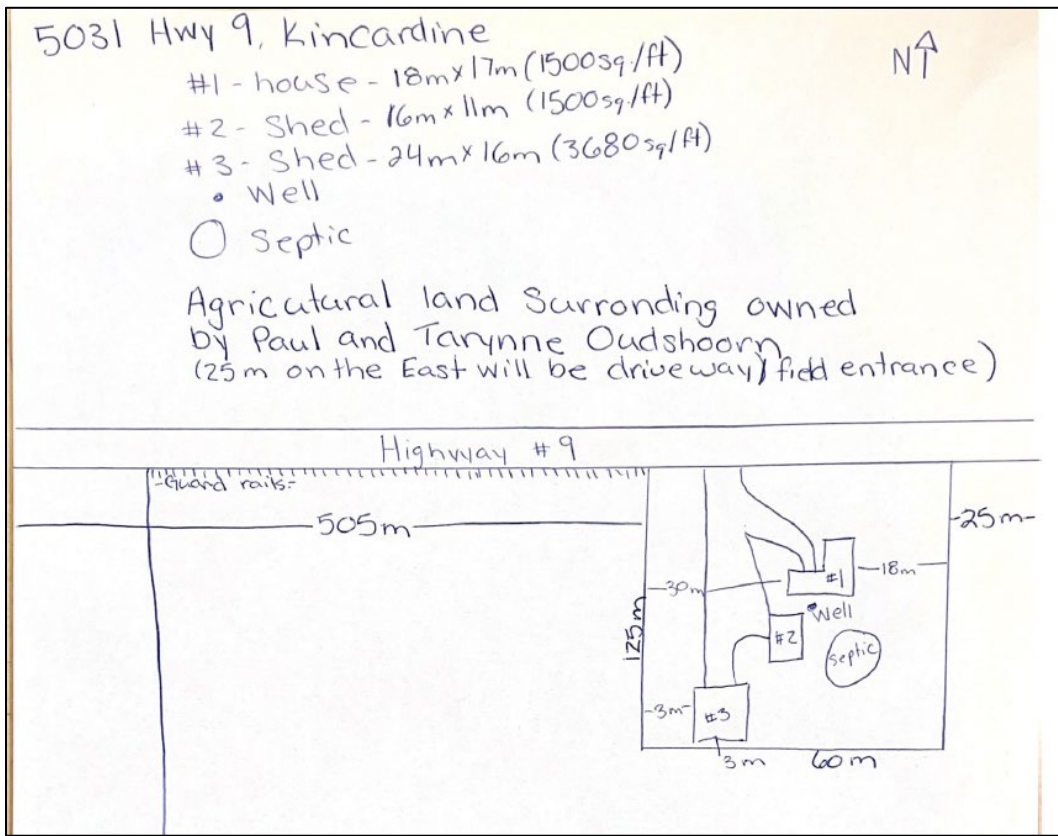 5031 Hwy 9, Kincardine
N
#1 - house - 18m x 17m (1500 sq./ft)
#2 - Shed - 16m x 11m (1500 sq./ft)
#3 - Shed - 24m x 16m (3680 sq/ft)
• Well
Septic
Agricutural land Surronding owned
by Paul and Tarynne Oudshoorn
(25 m on the East will be driveway/field entrance)
Highway #9
-Guard rails-
-505m-
-25m-
#1
-18m-
-30m-
Well
#2
125m
septic
-3m-
#3
3m
60m